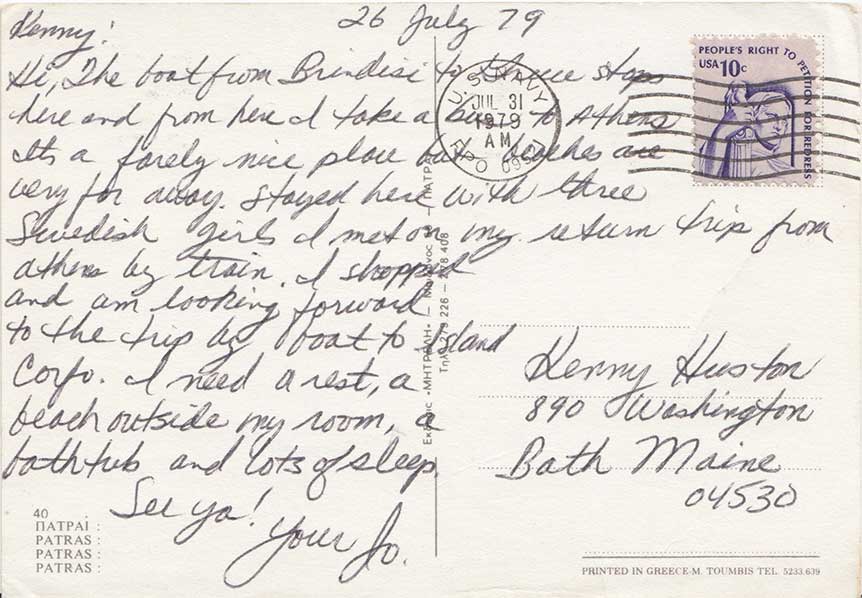 26 July 79
Kenny!
Hi, The boat from Brindisi to Greece stops
here and from here I take a bus to Athens
Its a farely nice place but beaches are
very far away. Stayed here with three
Swedish girls I met on my return trip from
athens by train. I shopped
and am looking forward
to the trip by boat to Island
Corfo. I need a rest, a
beach outside my room, a
bathtub and lots of sleep.
See ya!
Your Jo.
PEOPLE'S RIGHT TO PETITION FOR REDRESS
USA 10c
U.S. NAVY
JUL 31
1979
AM
Kenny Huston
890 Washington
Bath Maine
04530
Εκδόσις «ΜΗΤΡΟΠΟΛΗ» — ΠΑΤΡΑΙ
Τηλ. 279 226 - 278 408
40
ΠΑΤΡΑΙ :
PATRAS :
PATRAS :
PATRAS :
PRINTED IN GREECE-M. TOUMBIS TEL. 5233.639